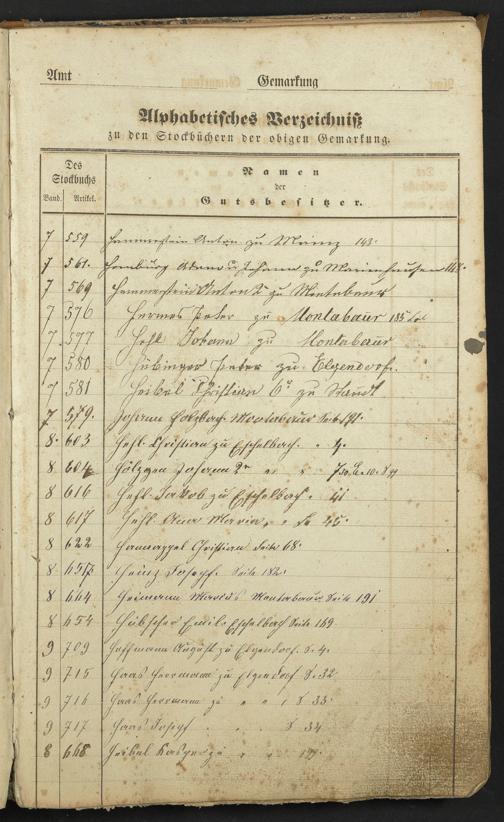 Amt Gemarkung
Alphabetisches Verzeichniß
zu den Stockbüchern der obigen Gemarkung.
Des
Stockbuchs
Band. Artikel.
Namen
der
Gutsbesitzer.
7 559 Hammerstein Anton zu Mainz 143.
7 561. Homburg Adam u. Johann zu
7 569 Hammerstein Anton 2r zu Montabaur
7 576 Hermes Peter zu Montabaur 185
7 577 Hehl Johann zu Montabaur
7 580 Hübinger Peter zu Elgendorf.
7 581 Heibel Christian 6r zu Staudt
7 579. Johann Holzbach Montabaur Seite
8. 603 Hehl Christian zu Eschelbach. " 4.
8 604 Johann 2r " "
8 616 Hehl Jakob zu Eschelbach " 41
8 617 Hehl Anna Maria " " 45.
8 622 Hannappel Christian Seite 68.
8 Heinz Joseph. Seite 182.
8 664 Heimann Montabaur Seite 191
8 654 Hübscher Emil Eschelbach Seite 169
9 709 Hoffmann August zu Elgendorf. S. 4.
9 715 Haas Herrmann zu Elgendorf S. 32
9 716 Haas Herrmann zu " " S 33.
9 717 Haas Joseph " " S 34
8 668 Heibel Kaspar zu " "